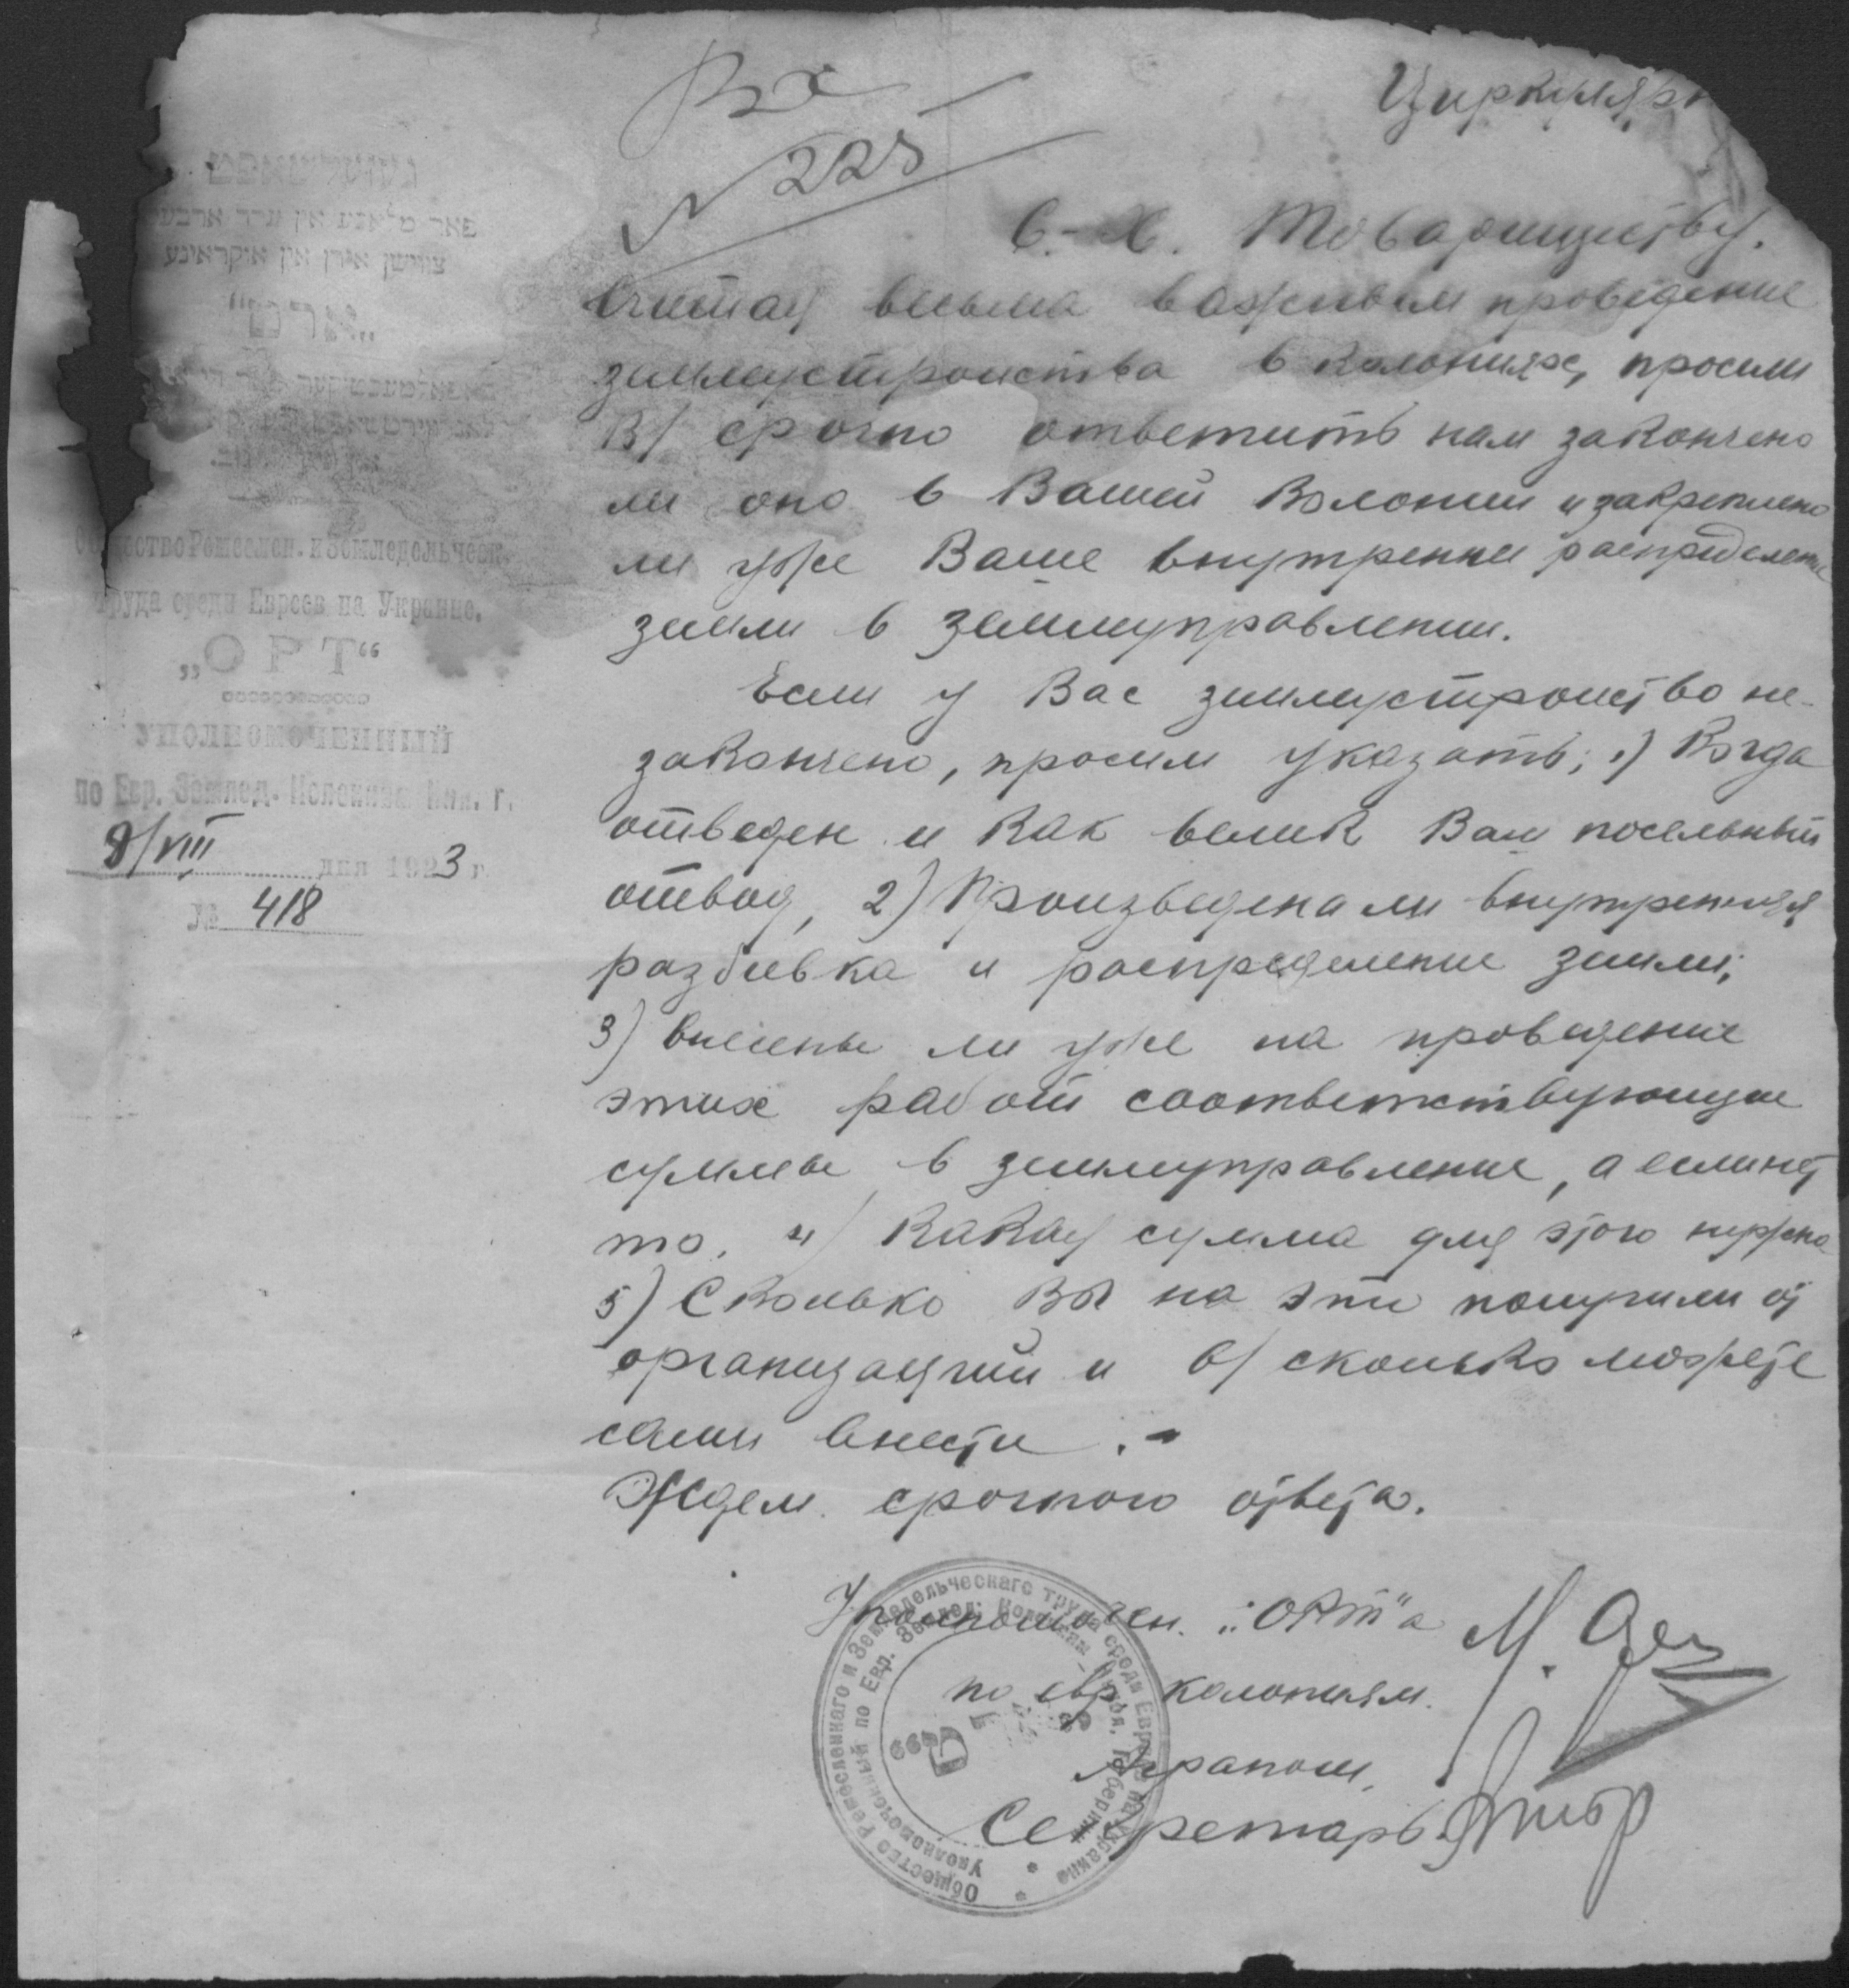 Вх
№ 225
Циркулярн
С.-Х. Товариществу.
געזעלשאפט
פאר מלאכע און ערד ארבעט
צווישן אידן אין אוקראינע
"ארט"
Общество Ремеслен. и Земледельческ.
Труда среди Евреев на Украине.
„ОРТ“
УПОЛНОМОЧЕННЫЙ
по Евр. Землед. Колониям г.
8/VIII дня 1923 г.
№ 418
Считая весьма важным проведение
землеустроиства в колониях, просим
В/ срочно ответить нам закончено
ли оно в Вашей Колонии и закреплено
ли уже Ваше внутренне распределение
земли в Земмуправлении.
Если у Вас землеустроиство не-
закончено, просим указать; 1) Когда
отведен и как велик Ваш посельный
отвод, 2) Произведена ли внутренняя
разбивка и распределение земли;
3) внесены ли уже на проведение
этих работ соответствующие
суммы в земмуправление, а если нет
то, 4) Какая сумма для этого нужна
5) Сколько Вы на эти получили от
организаций и 6/ сколько можете
сами внести .-
Ждем срочного ответа.
Уполномочен. „ОРТ"а
по евр колониям.
Секретарь
Общество Ремесленнаго и Земледельческаго труда среди Евреев на Украине
Уполномоченный по Евр. Землед. Колониям Губернии